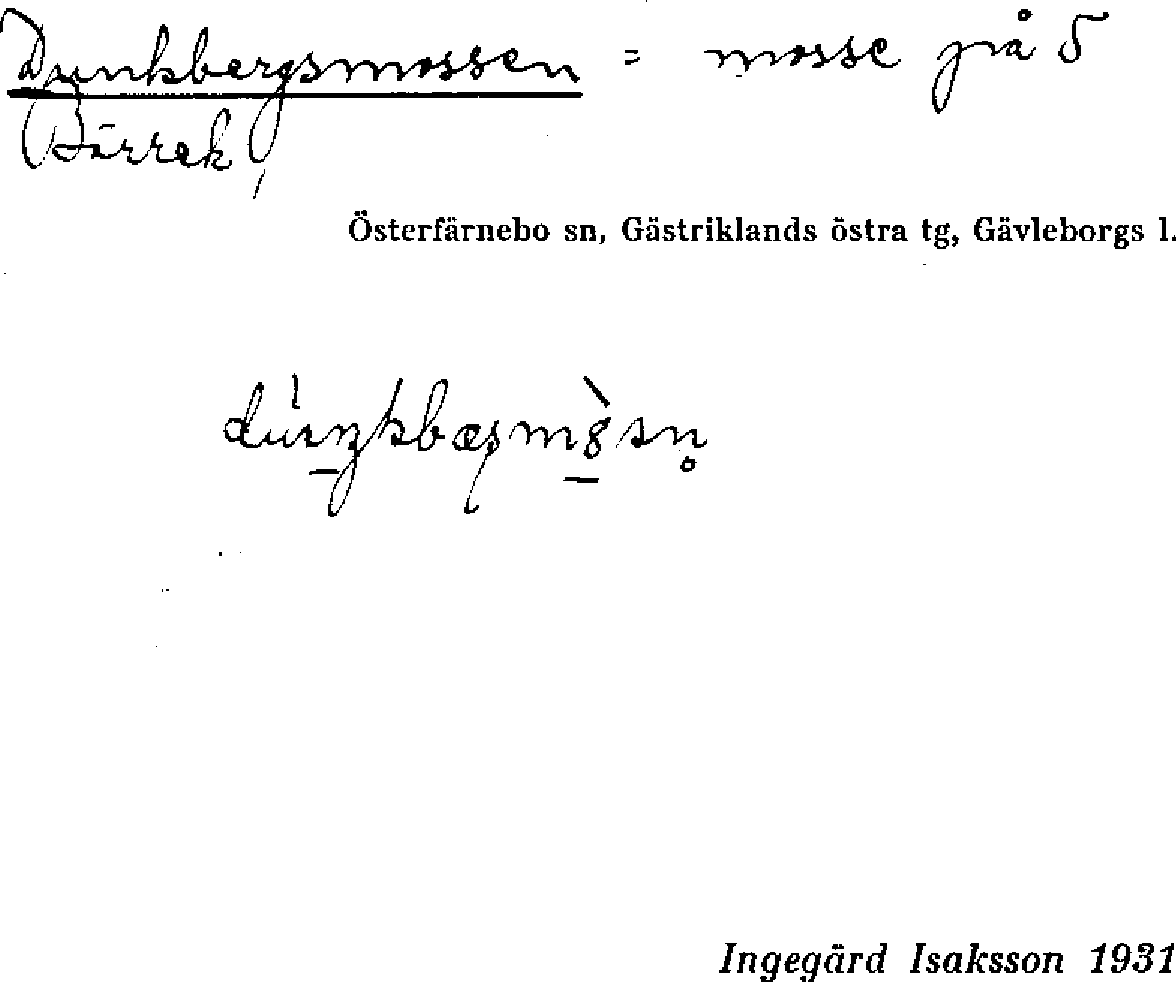 Dunkbergsmossen = mosse på 5
Bärrek,
Österfärnebo sn, Gästriklands östra tg, Gävleborgs l.
Ingegärd Isaksson 1931